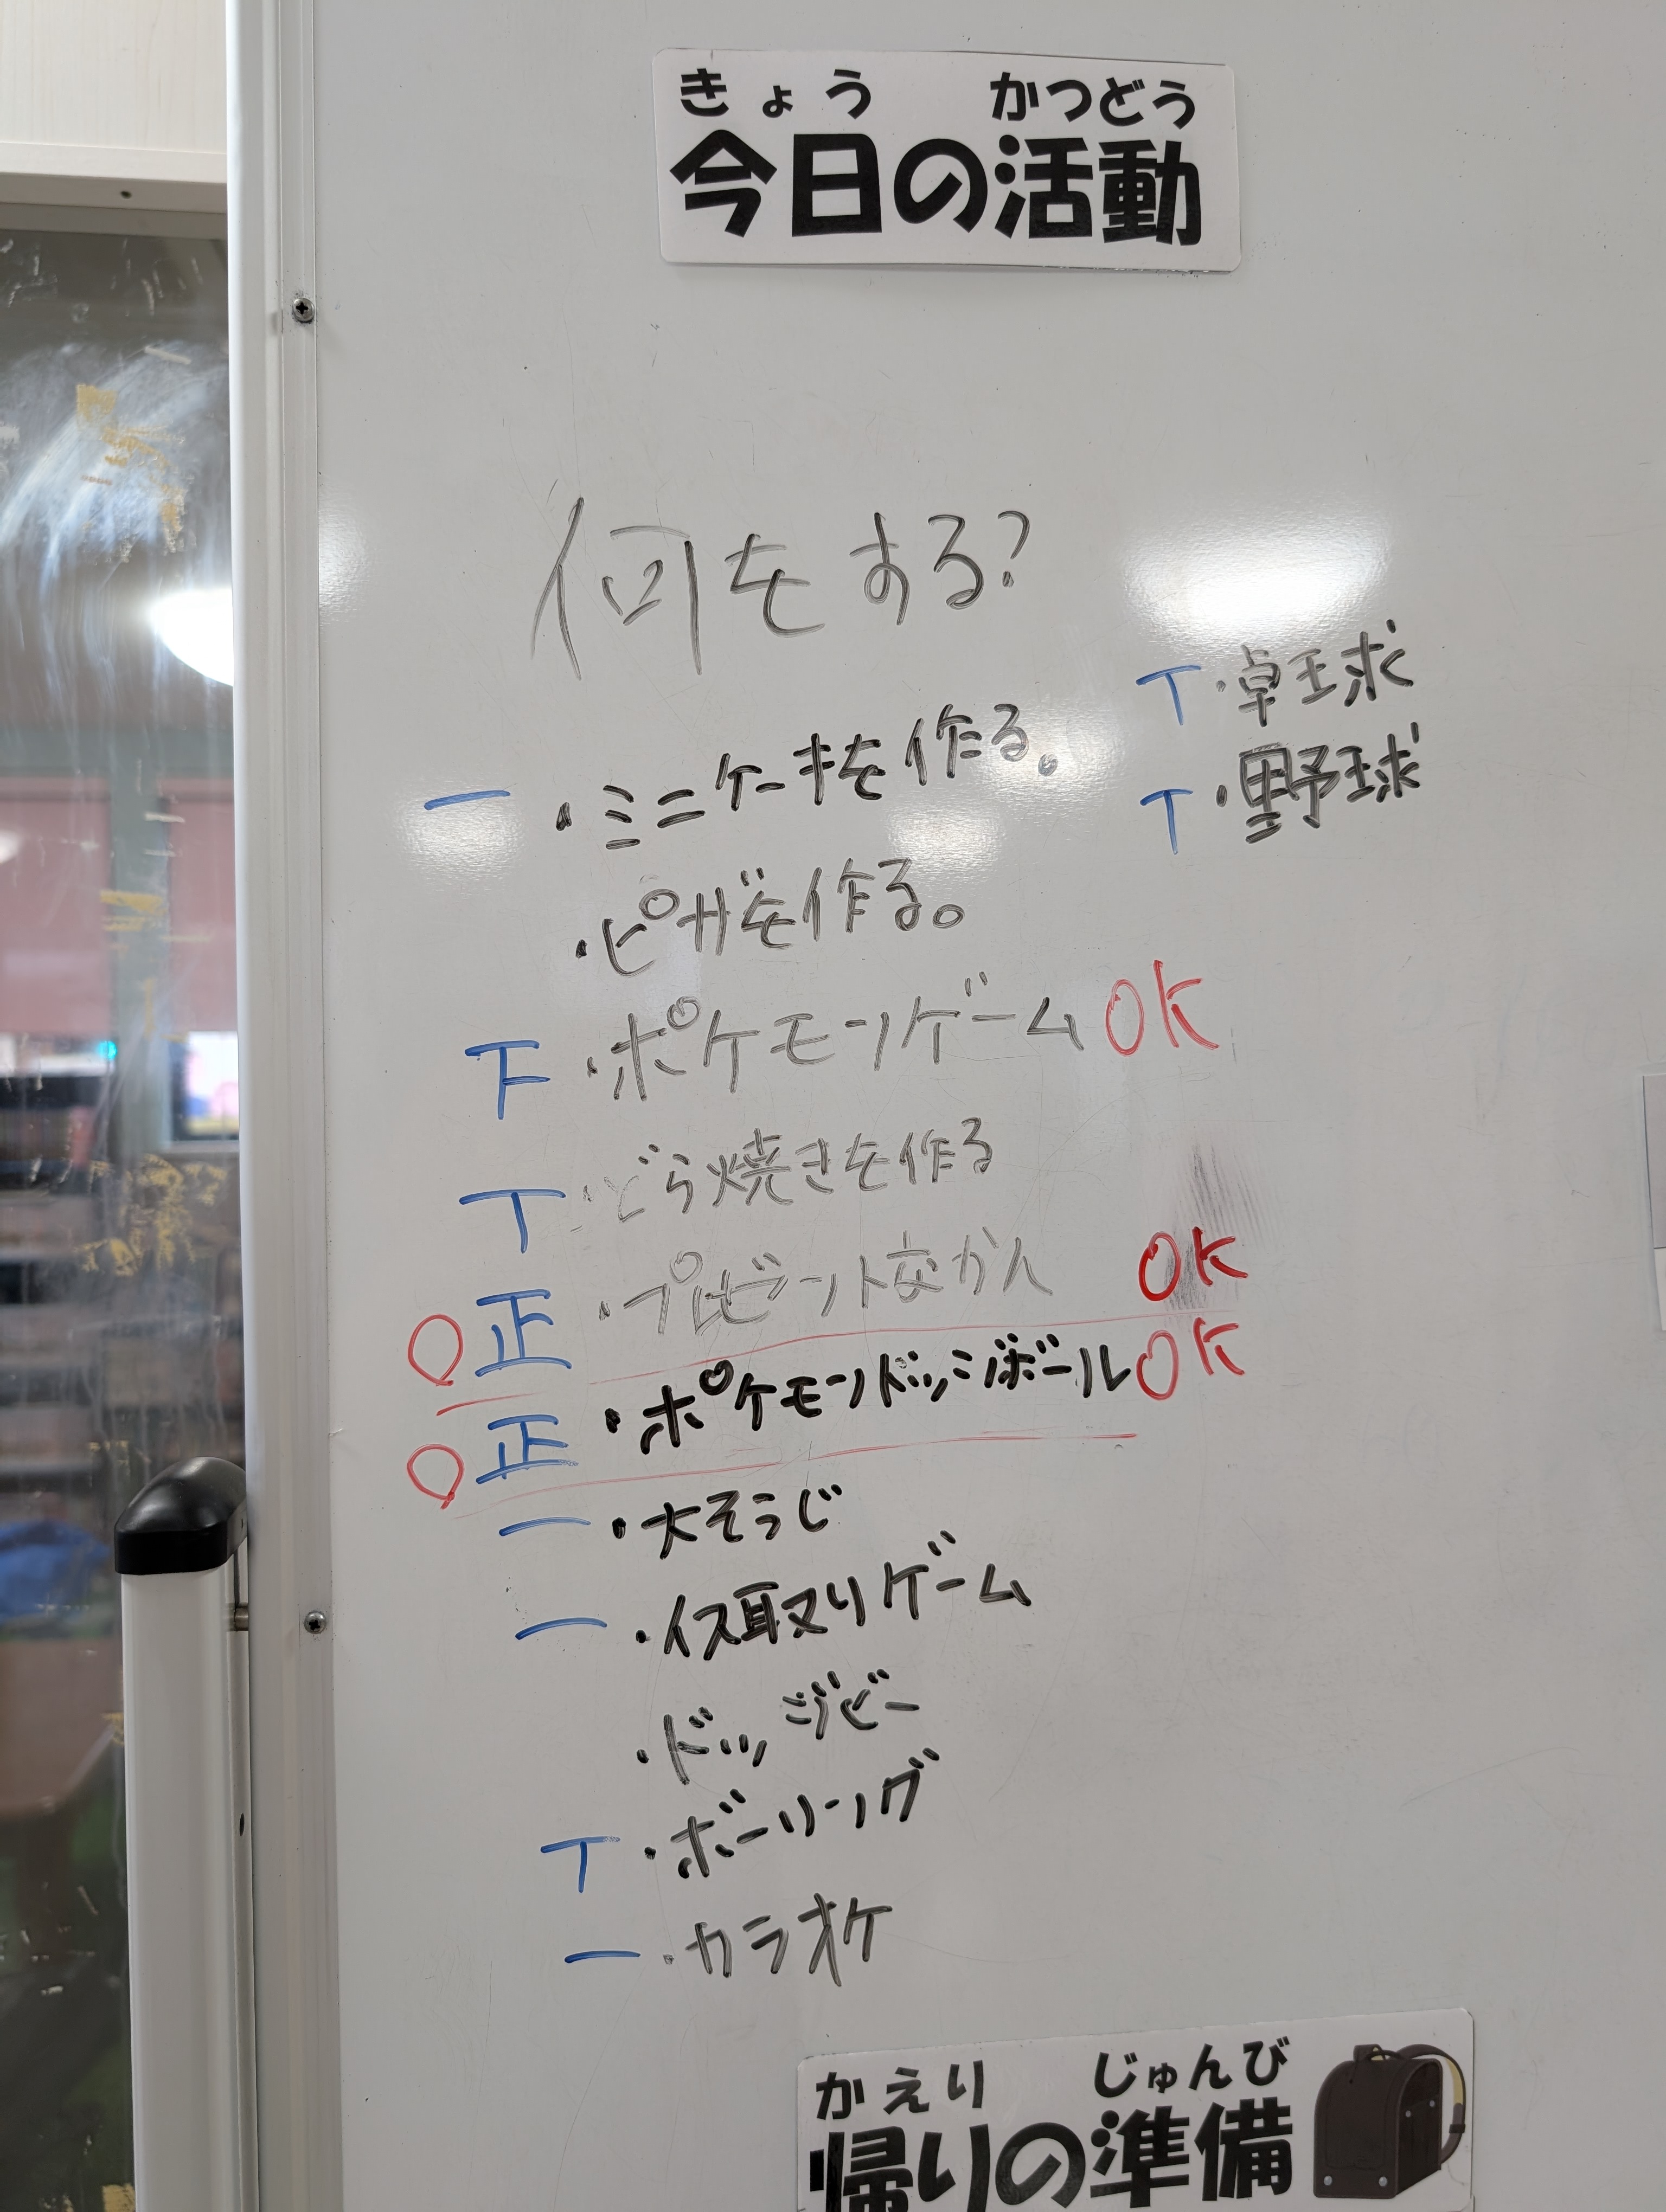 きょう かつどう
今日の活動
何をする?
一 ・ミニケーキを作る。
・ピザを作る。
下 ・ポケモンゲーム OK
T ・どら焼きを作る
○ 正 ・プレゼント交かん OK
○ 正 ・ポケモンドッジボール OK
一 ・大そうじ
一 ・イス取りゲーム
・ドッジビー
T ・ボーリング
一 ・カラオケ
T ・卓球
T ・野球
かえり じゅんび
帰りの準備